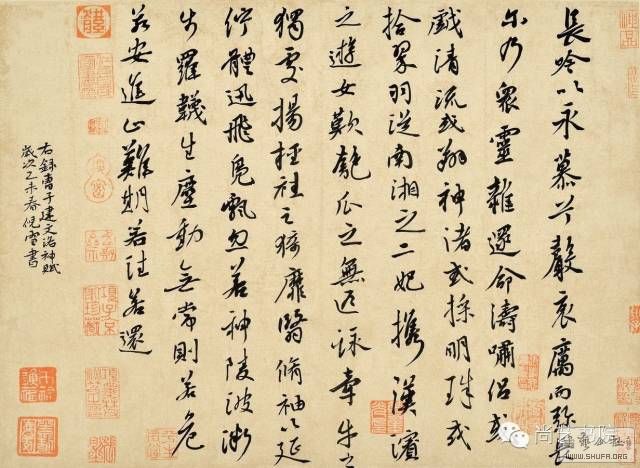 長吟以永慕兮聲哀厲而彌長
尔乃眾靈雜遝命儔嘯侶或
戲清流或翔神渚或採明珠或
拾翠羽從南湘之二妃攜漢濱
之遊女歎匏瓜之無匹詠牽牛之
獨處揚輕袿之猗靡翳脩袖以延
佇體迅飛鳧飄忽若神陵波微
步羅韈生塵動無常則若危
若安進止難期若往若還
右錄曹子建文洛神賦
歲次乙未春倪雪書
WWW.SHUFA.ORG